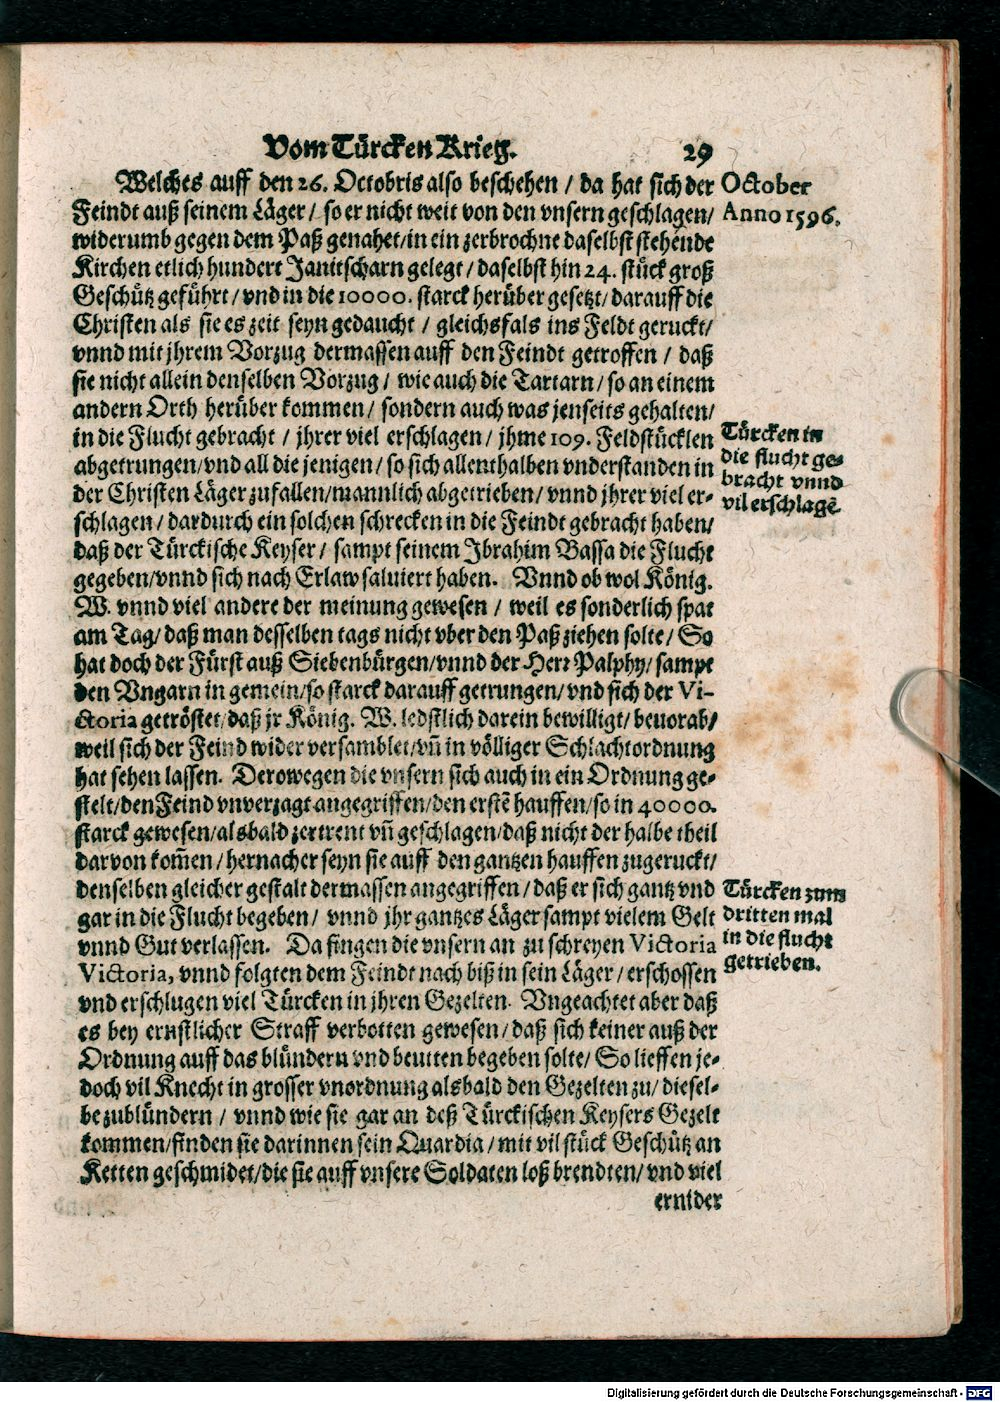 Vom Türcken Krieg. 29
Welches auff den 26. Octobris also beschehen / da hat sich der
Feindt auß seinem Läger / so er nicht weit von den vnsern geschlagen/
widerumb gegen dem Paß genahet/in ein zerbrochne daselbst stehende
Kirchen etlich hundert Janitscharn gelegt / daselbst hin 24. stück groß
Geschütz geführt / vnd in die 10000. starck herüber gesetzt/ darauff die
Christen als sie es zeit seyn gedaucht / gleichsfals ins Feldt geruckt/
vnnd mit jhrem Vorzug dermassen auff den Feindt getroffen / daß
sie nicht allein denselben Vorzug / wie auch die Tartarn / so an einem
andern Orth herüber kommen / sondern auch was jenseits gehalten/
in die Flucht gebracht / jhrer viel erschlagen / jhme 109. Feldstücklen
abgetrungen/vnd all die jenigen / so sich allenthalben vnderstanden in
der Christen Läger zufallen/mannlich abgetrieben / vnnd jhrer viel er-
schlagen / dardurch ein solchen schrecken in die Feindt gebracht haben/
daß der Türckische Keyser / sampt seinem Ibrahim Bassa die Flucht
gegeben/vnnd sich nach Erlaw saluiert haben. Vnnd ob wol König.
W. vnnd viel andere der meinung gewesen / weil es sonderlich spat
am Tag/ daß man desselben tags nicht vber den Paß ziehen solte/ So
hat doch der Fürst auß Siebenbürgen/vnnd der Herr Palphy/ sampt
den Vngarn in gemein/so starck darauff getrungen/ vnd sich der Vi-
ctoria getröstet/daß jr König. W. ledstlich darein bewilligt/ beuorab/
weil sich der Feind wider versamblet/vñ in völliger Schlachtordnung
hat sehen lassen. Derowegen die vnsern sich auch in ein Ordnung ge-
stelt/den Feind vnverzagt angegriffen/den erstē hauffen/so in 40000.
starck gewesen/alsbald zertrent vñ geschlagen/daß nicht der halbe theil
darvon kom̃en / hernacher seyn sie auff den gantzen hauffen zugeruckt/
denselben gleicher gestalt dermassen angegriffen / daß er sich gantz vnd
gar in die Flucht begeben / vnnd jhr gantzes Läger sampt vielem Gelt
vnnd Gut verlassen. Da fingen die vnsern an zu schreyen Victoria
Victoria, vnnd folgten dem Feindt nach biß in sein Läger / erschossen
vnd erschlugen viel Türcken in jhren Gezelten. Vngeachtet aber daß
es bey ernstlicher Straff verbotten gewesen / daß sich keiner auß der
Ordnung auff das blündern vnd beutten begeben solte/ So lieffen je-
doch vil Knecht in grosser vnordnung alsbald den Gezelten zu/ diesel-
be zublündern / vnnd wie sie gar an deß Türckischen Keysers Gezelt
kommen/finden sie darinnen sein Quardia / mit vil stück Geschütz an
Ketten geschmidet/die sie auff vnsere Soldaten loß brendten/ vnd viel
ernider
October
Anno 1596.
Türcken in
die flucht ge-
bracht vnnd
vil erschlagē.
Türcken zum
dritten mal
in die flucht
getrieben.
Digitalisierung gefördert durch die Deutsche Forschungsgemeinschaft - DFG